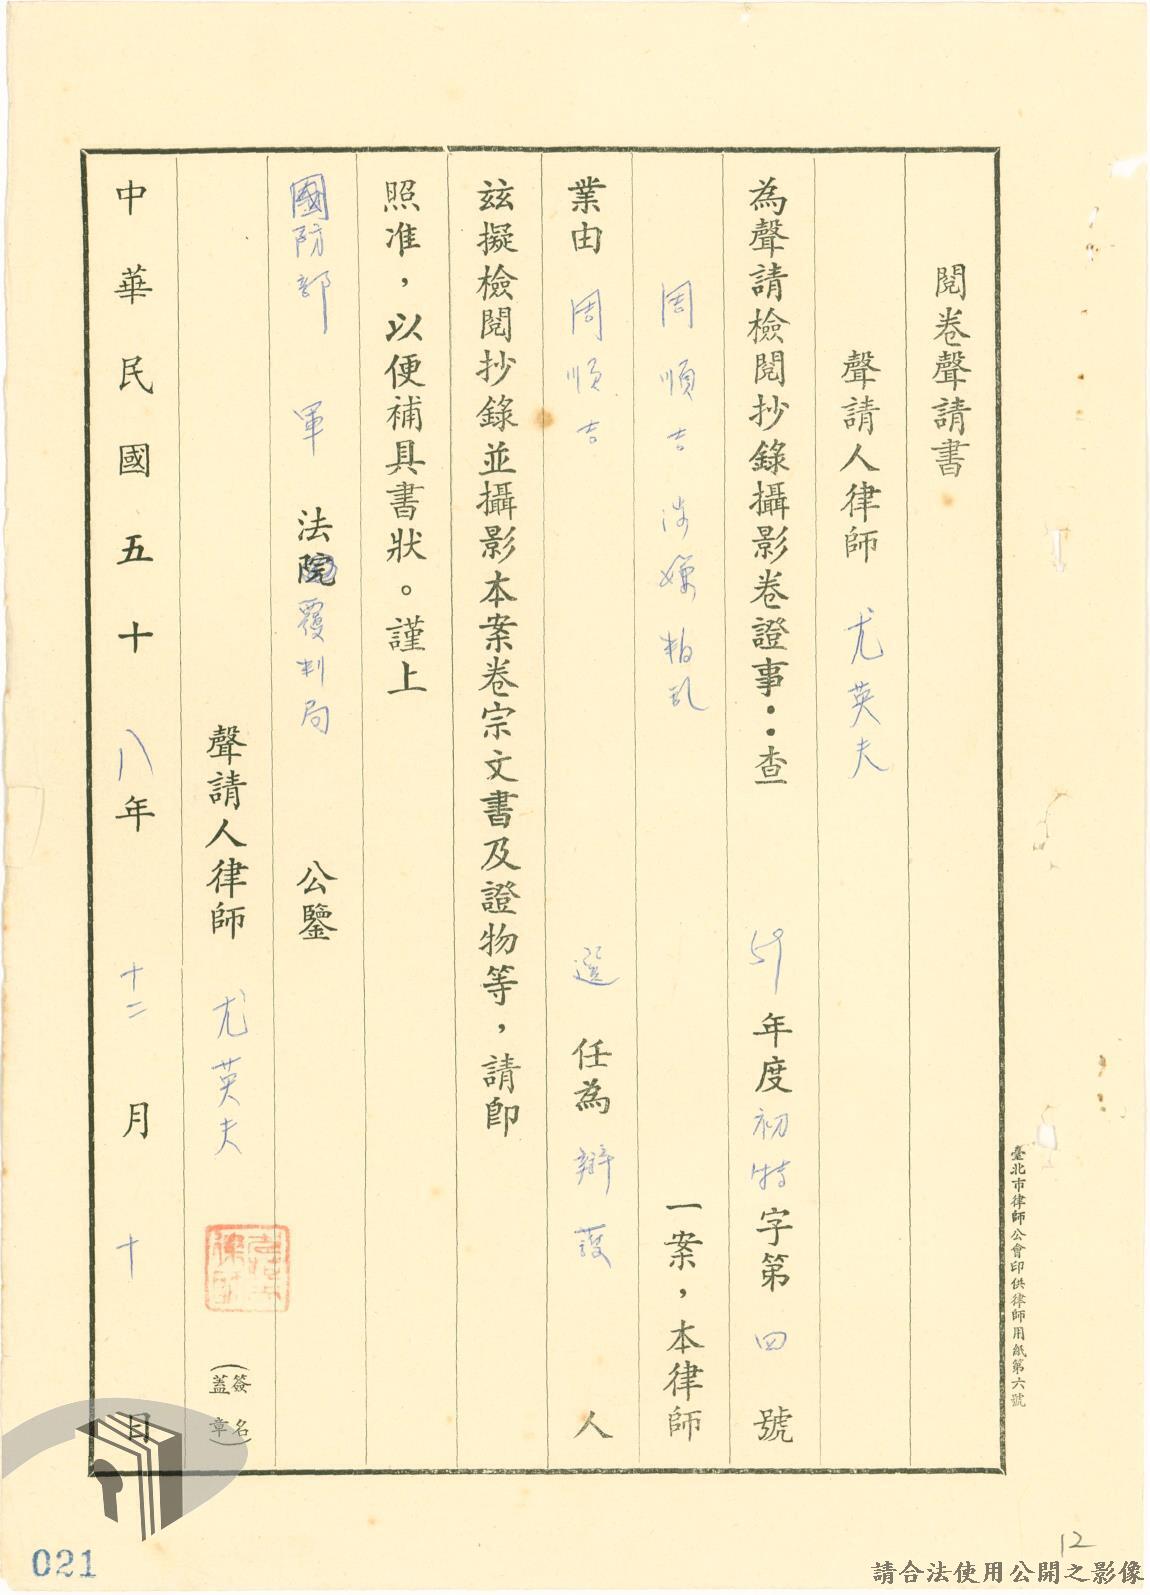 閱卷聲請書
聲請人律師 尤英夫
為聲請檢閱抄錄攝影卷證事：查 59年度初特字第四號
周順吉涉嫌叛乱 一案，本律師
業由 周順吉 選任為辯護人
茲擬檢閱抄錄並攝影本案卷宗文書及證物等，請卽
照准，以便補具書狀。謹上
國防部 軍 法 覆判局 公鑒
聲請人律師 尤英夫 (簽名蓋章)
中華民國五十八年 十二月 十 日
臺北市律師公會印供律師用紙第六號
12
021
請合法使用公開之影像